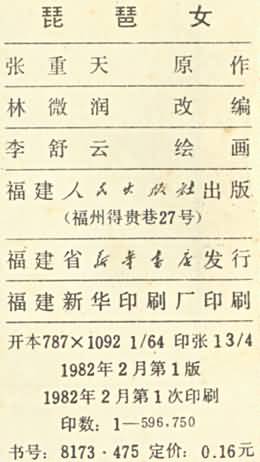 琵琶女
张重天 原作
林微润 改编
李舒云 绘画
福建人民出版社出版
(福州得贵巷27号)
福建省新华书店发行
福建新华印刷厂印刷
开本787×1092 1/64 印张 1 3/4
1982年2月第1版
1982年2月第1次印刷
印数：1—596,750
书号：8173·475 定价：0.16元